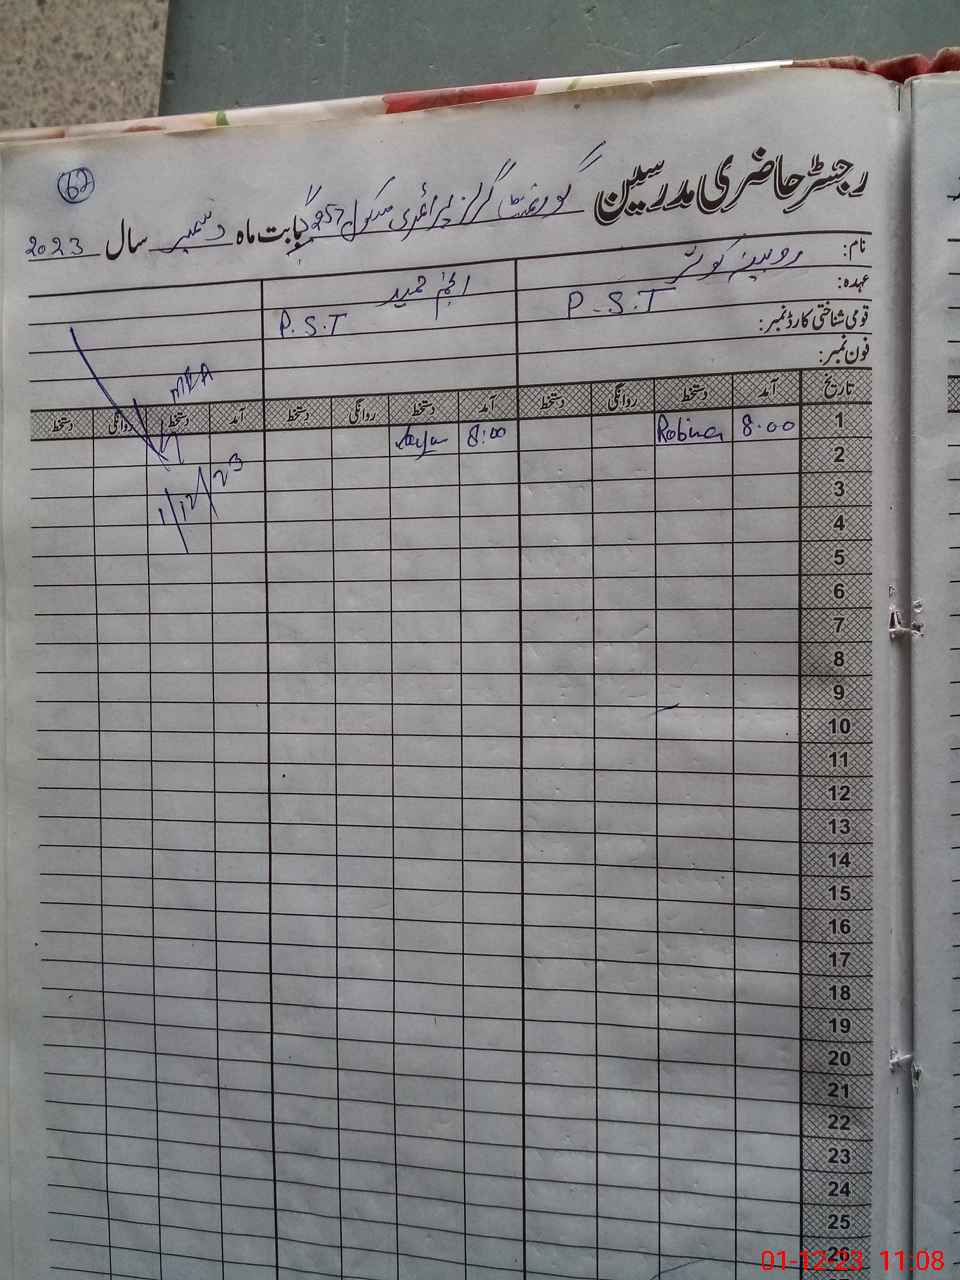 62
رجسٹر حاضری مدرسین گورنمنٹ گرلز پرائمری سکول 257 گ ب بابت ماہ دسمبر سال 2023
نام: روبینہ کوثر انجم حمید
عہدہ: P.S.T P.S.T
قومی شناختی کارڈ نمبر:
فون نمبر:
MEA
تاریخ آمد دستخط روانگی دستخط آمد دستخط روانگی دستخط آمد دستخط روانگی دستخط
1 8:00 Robina 8:00
1/12/23
2
3
4
5
6
7
8
9
10
11
12
13
14
15
16
17
18
19
20
21
22
23
24
25
26
01-12-23 11:08